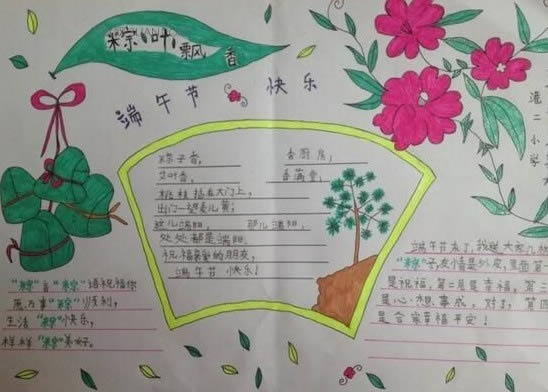 粽叶飘香
端午节 快乐
粽子香， 香厨房，
艾叶香， 香满堂，
桃枝插在大门上，
出门一望麦儿黄；
这儿端阳， 那儿端阳，
处处都是端阳，
祝福亲爱的朋友，
端午节快乐！
"粽"言"粽"语祝福你
愿万事"粽"顺利，
生活"粽"快乐，
样样"粽"美好。
端午节来了，我送大家几
"粽"子，友情是外皮，里面第
是祝福，第二是幸福，第三
是心想事成，对了，第四
是合家幸福平安！
港二小学